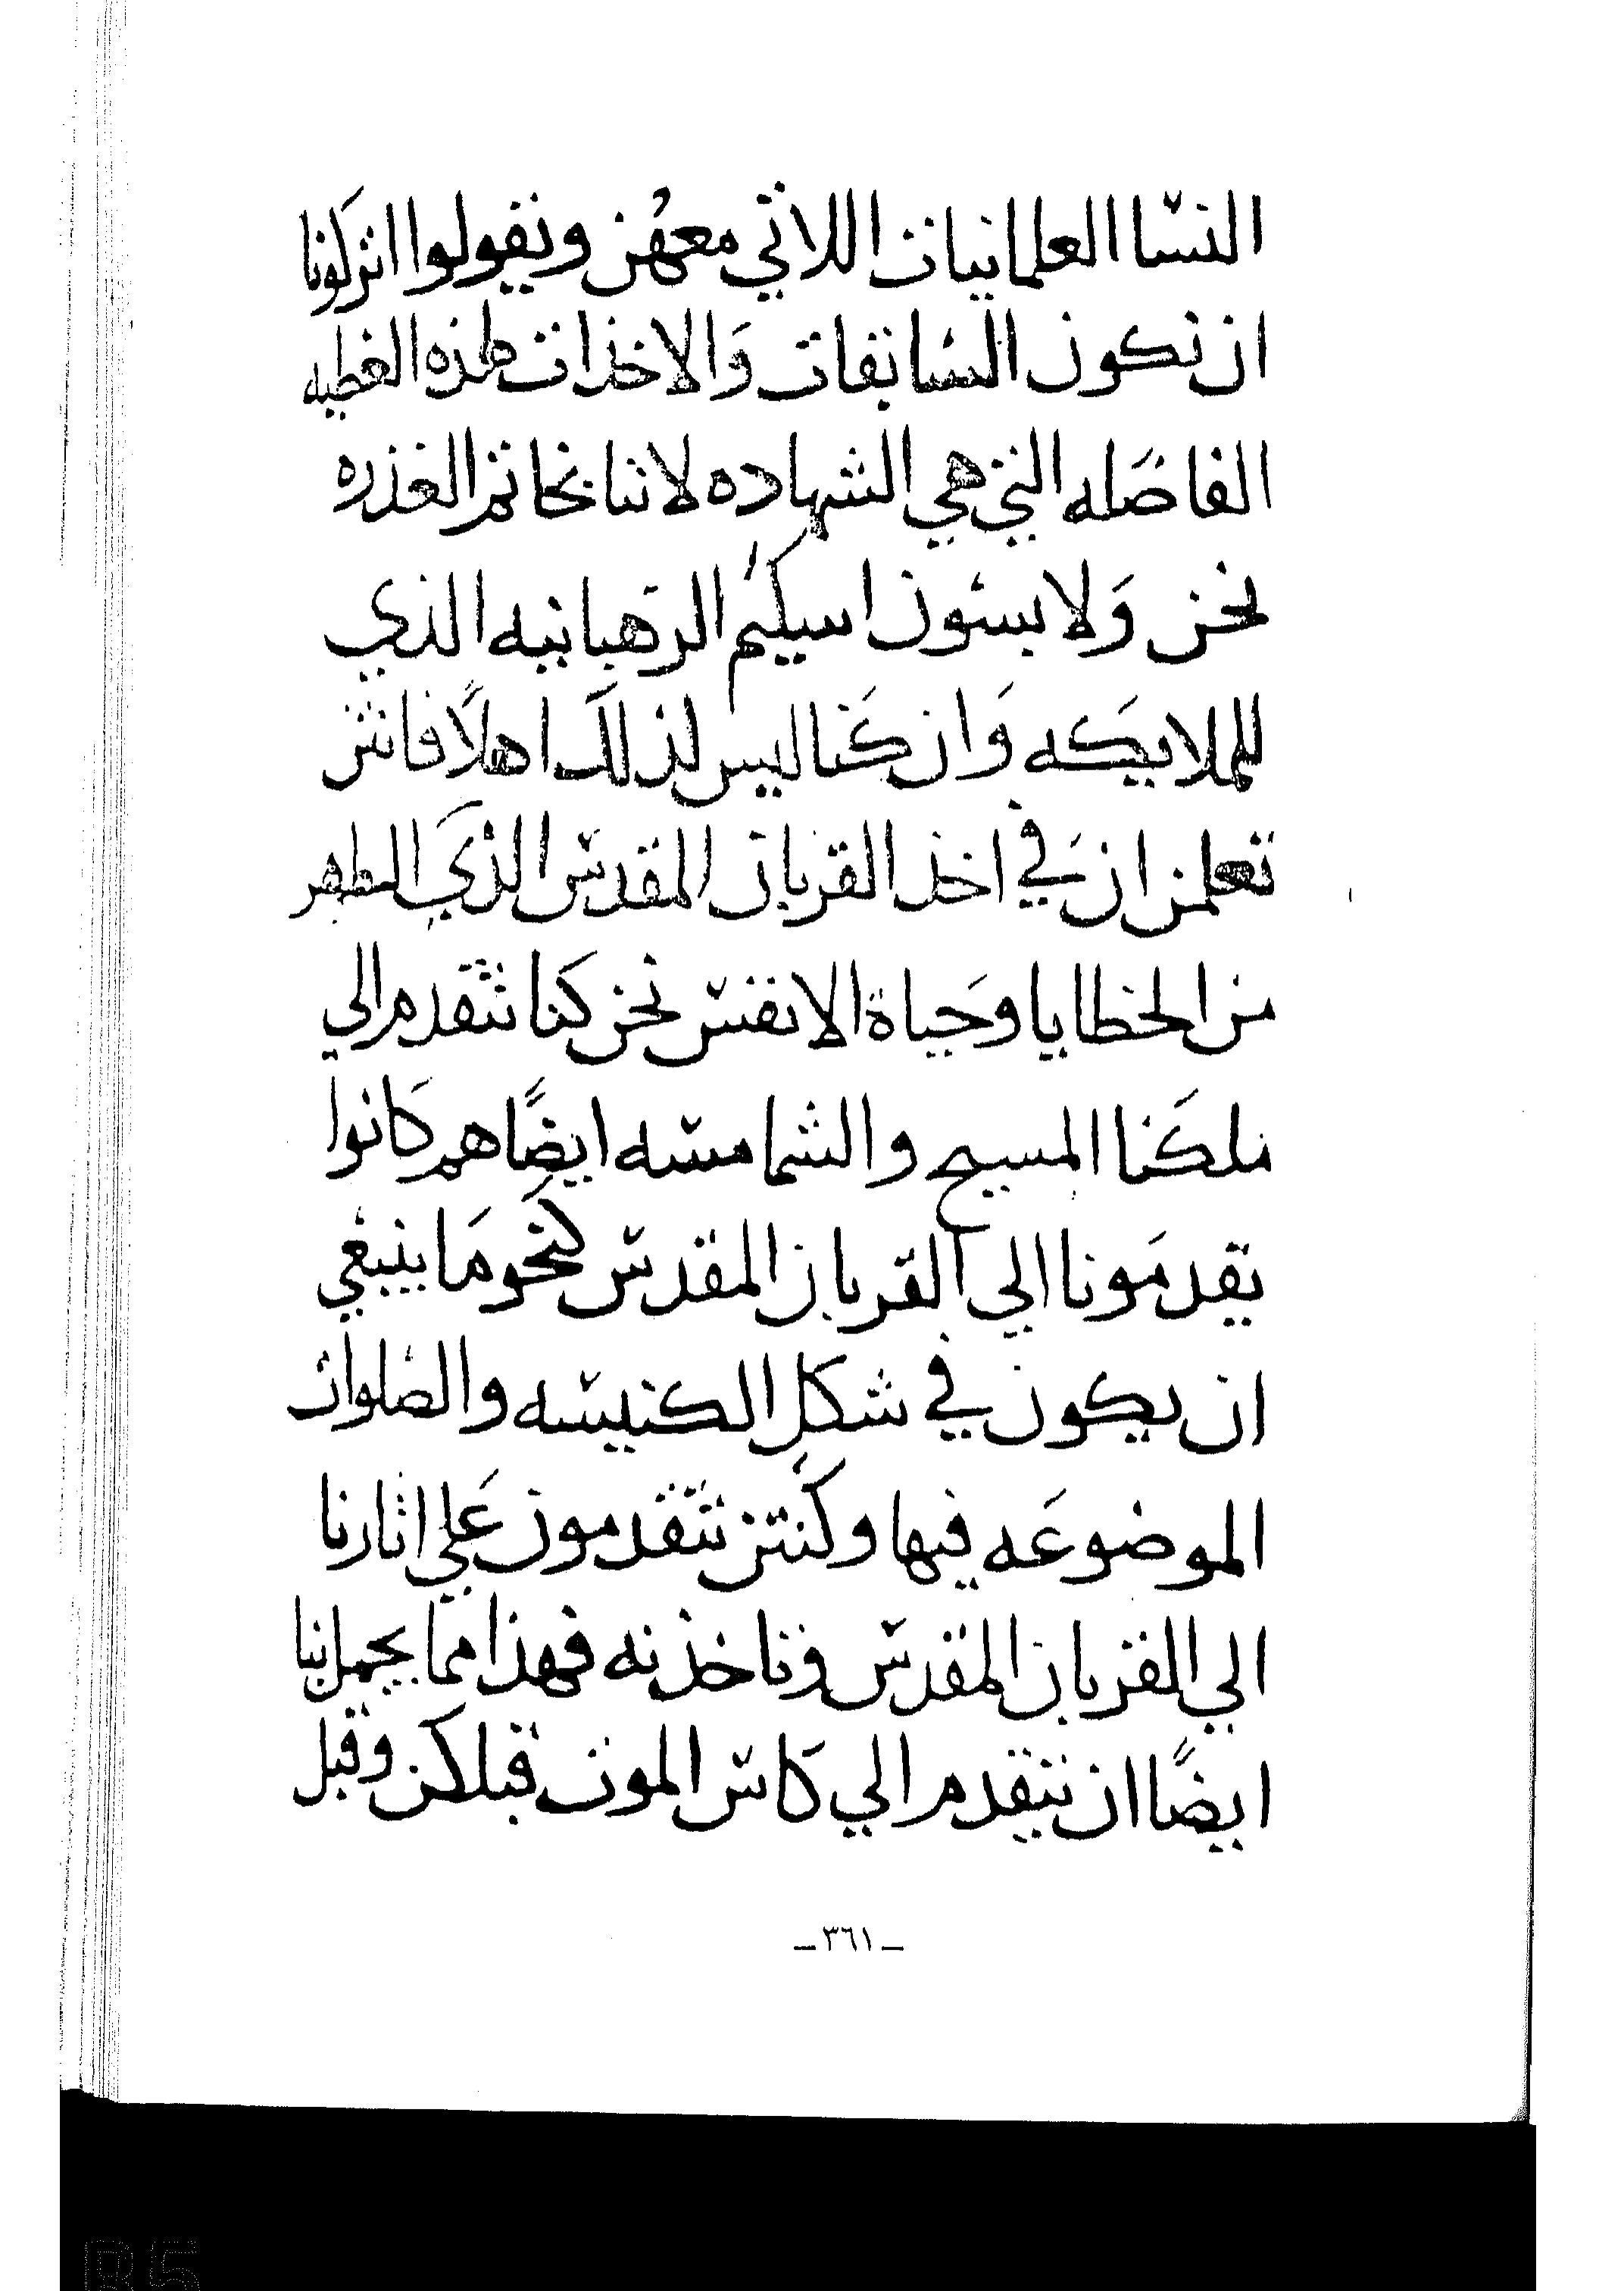 النسا العلمانيات اللاتي معهن ونقولوا اتركونا
ان نكون السابقات وَالاخذات لهذه العطيه
الفاضله التي هي الشهاده لاننا نحاتم العذره
نحن وَلابسون اسكيم الرهبانيه الذي
للملايكه وَان كنا ليس لذلك اهلاً فانتن
تعلمن ان في اخذ القربان المقدس الذي المطهر
من الخطايا وحياة الانفس نحن كنا نتقدم الي
ملكنا المسيح والشمامسه ايضًا هم كانوا
يقدمونا الي القربان المقدس كنحو ما ينبغي
ان يكون في شكل الكنيسه والصلوات
الموضوعه فيها وكنتن تتقدمون علي اثارنا
الي القربان المقدس وناخذنه فهذا مما يجمل بنا
ايضًا ان نتقدم الي كاس الموت قبلكن وقبل
ـ ٣٦١ ـ